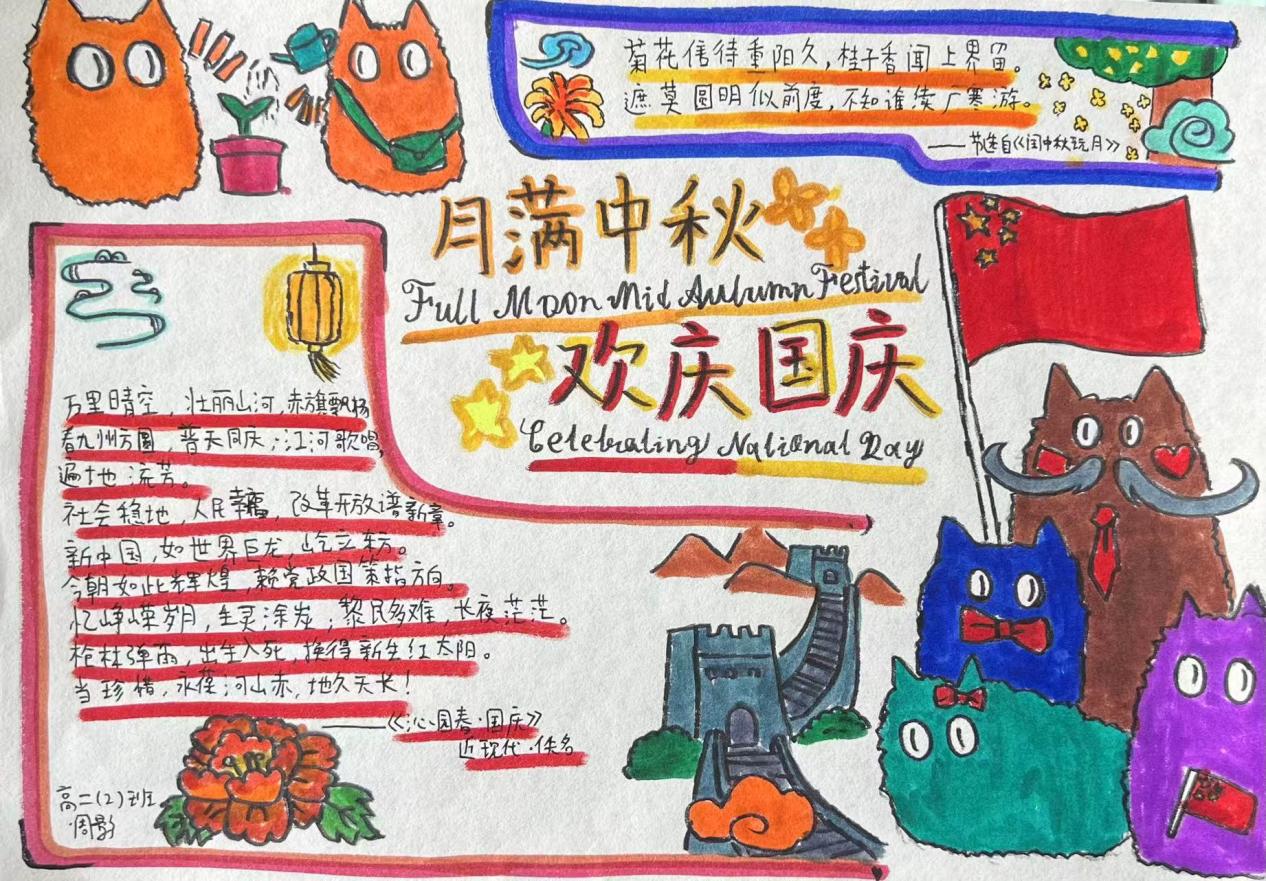 菊花信待重阳久,桂子香闻上界留。
遮莫圆明似前度,不知谁续广寒游。
——节选自《闰中秋玩月》
月满中秋
Full Moon Mid Autumn Festival
欢庆国庆
Celebrating National Day
万里晴空,壮丽山河,赤旗飘扬
看九州方圆,普天同庆;江河歌唱,
遍地流芳。
社会稳地,人民幸福,改革开放谱新章。
新中国,如世界巨龙,屹立东方。
今朝如此辉煌,赖党政国策指方向。
忆峥嵘岁月,生灵涂炭;黎民多难,长夜茫茫。
枪林弹雨,出生入死,换得新生红太阳。
当珍惜,永葆河山赤,地久天长!
——《沁园春·国庆》
近现代·佚名
高二(2)班
周影